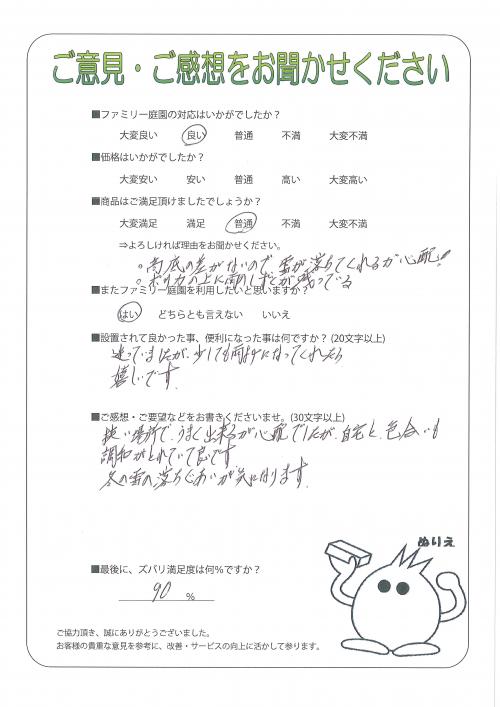 ご意見・ご感想をお聞かせください
■ファミリー庭園の対応はいかがでしたか？
大変良い 良い 普通 不満 大変不満
■価格はいかがでしたか？
大変安い 安い 普通 高い 大変高い
■商品はご満足頂けましたでしょうか？
大変満足 満足 普通 不満 大変不満
⇒よろしければ理由をお聞かせください。
。高低の差がないので雪が落ちてくれるか心配！
。ポリカの上に雨のしずくが残っている
■またファミリー庭園を利用したいと思いますか？
はい どちらとも言えない いいえ
■設置されて良かった事、便利になった事は何ですか？(20文字以上)
迷っていましたが、少しでも雨よけになってくれたら
嬉しいです.
■ご感想・ご要望などをお書きくださいませ。(30文字以上)
狭い場所で、うまく出来るか心配でしたが、自宅と、色合いも
調和がとれていて良です
冬の雪の落ちぐあいが気になります.
ぬりえ
■最後に、ズバリ満足度は何%ですか？
90 %
ご協力頂き、誠にありがとうございました。
お客様の貴重な意見を参考に、改善・サービスの向上に活かして参ります。